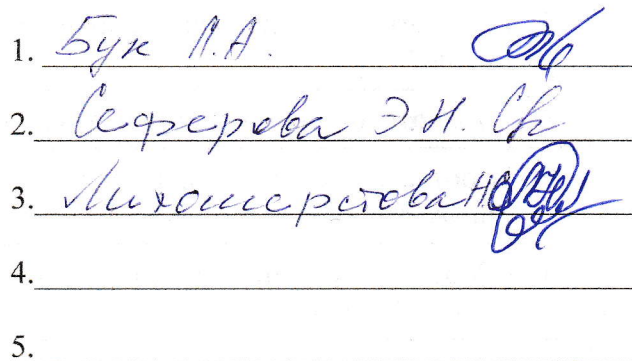 1. Бук Л.А.
2. Сеферова Э.Н.
3. Лихошерстова Н.
4.
5.